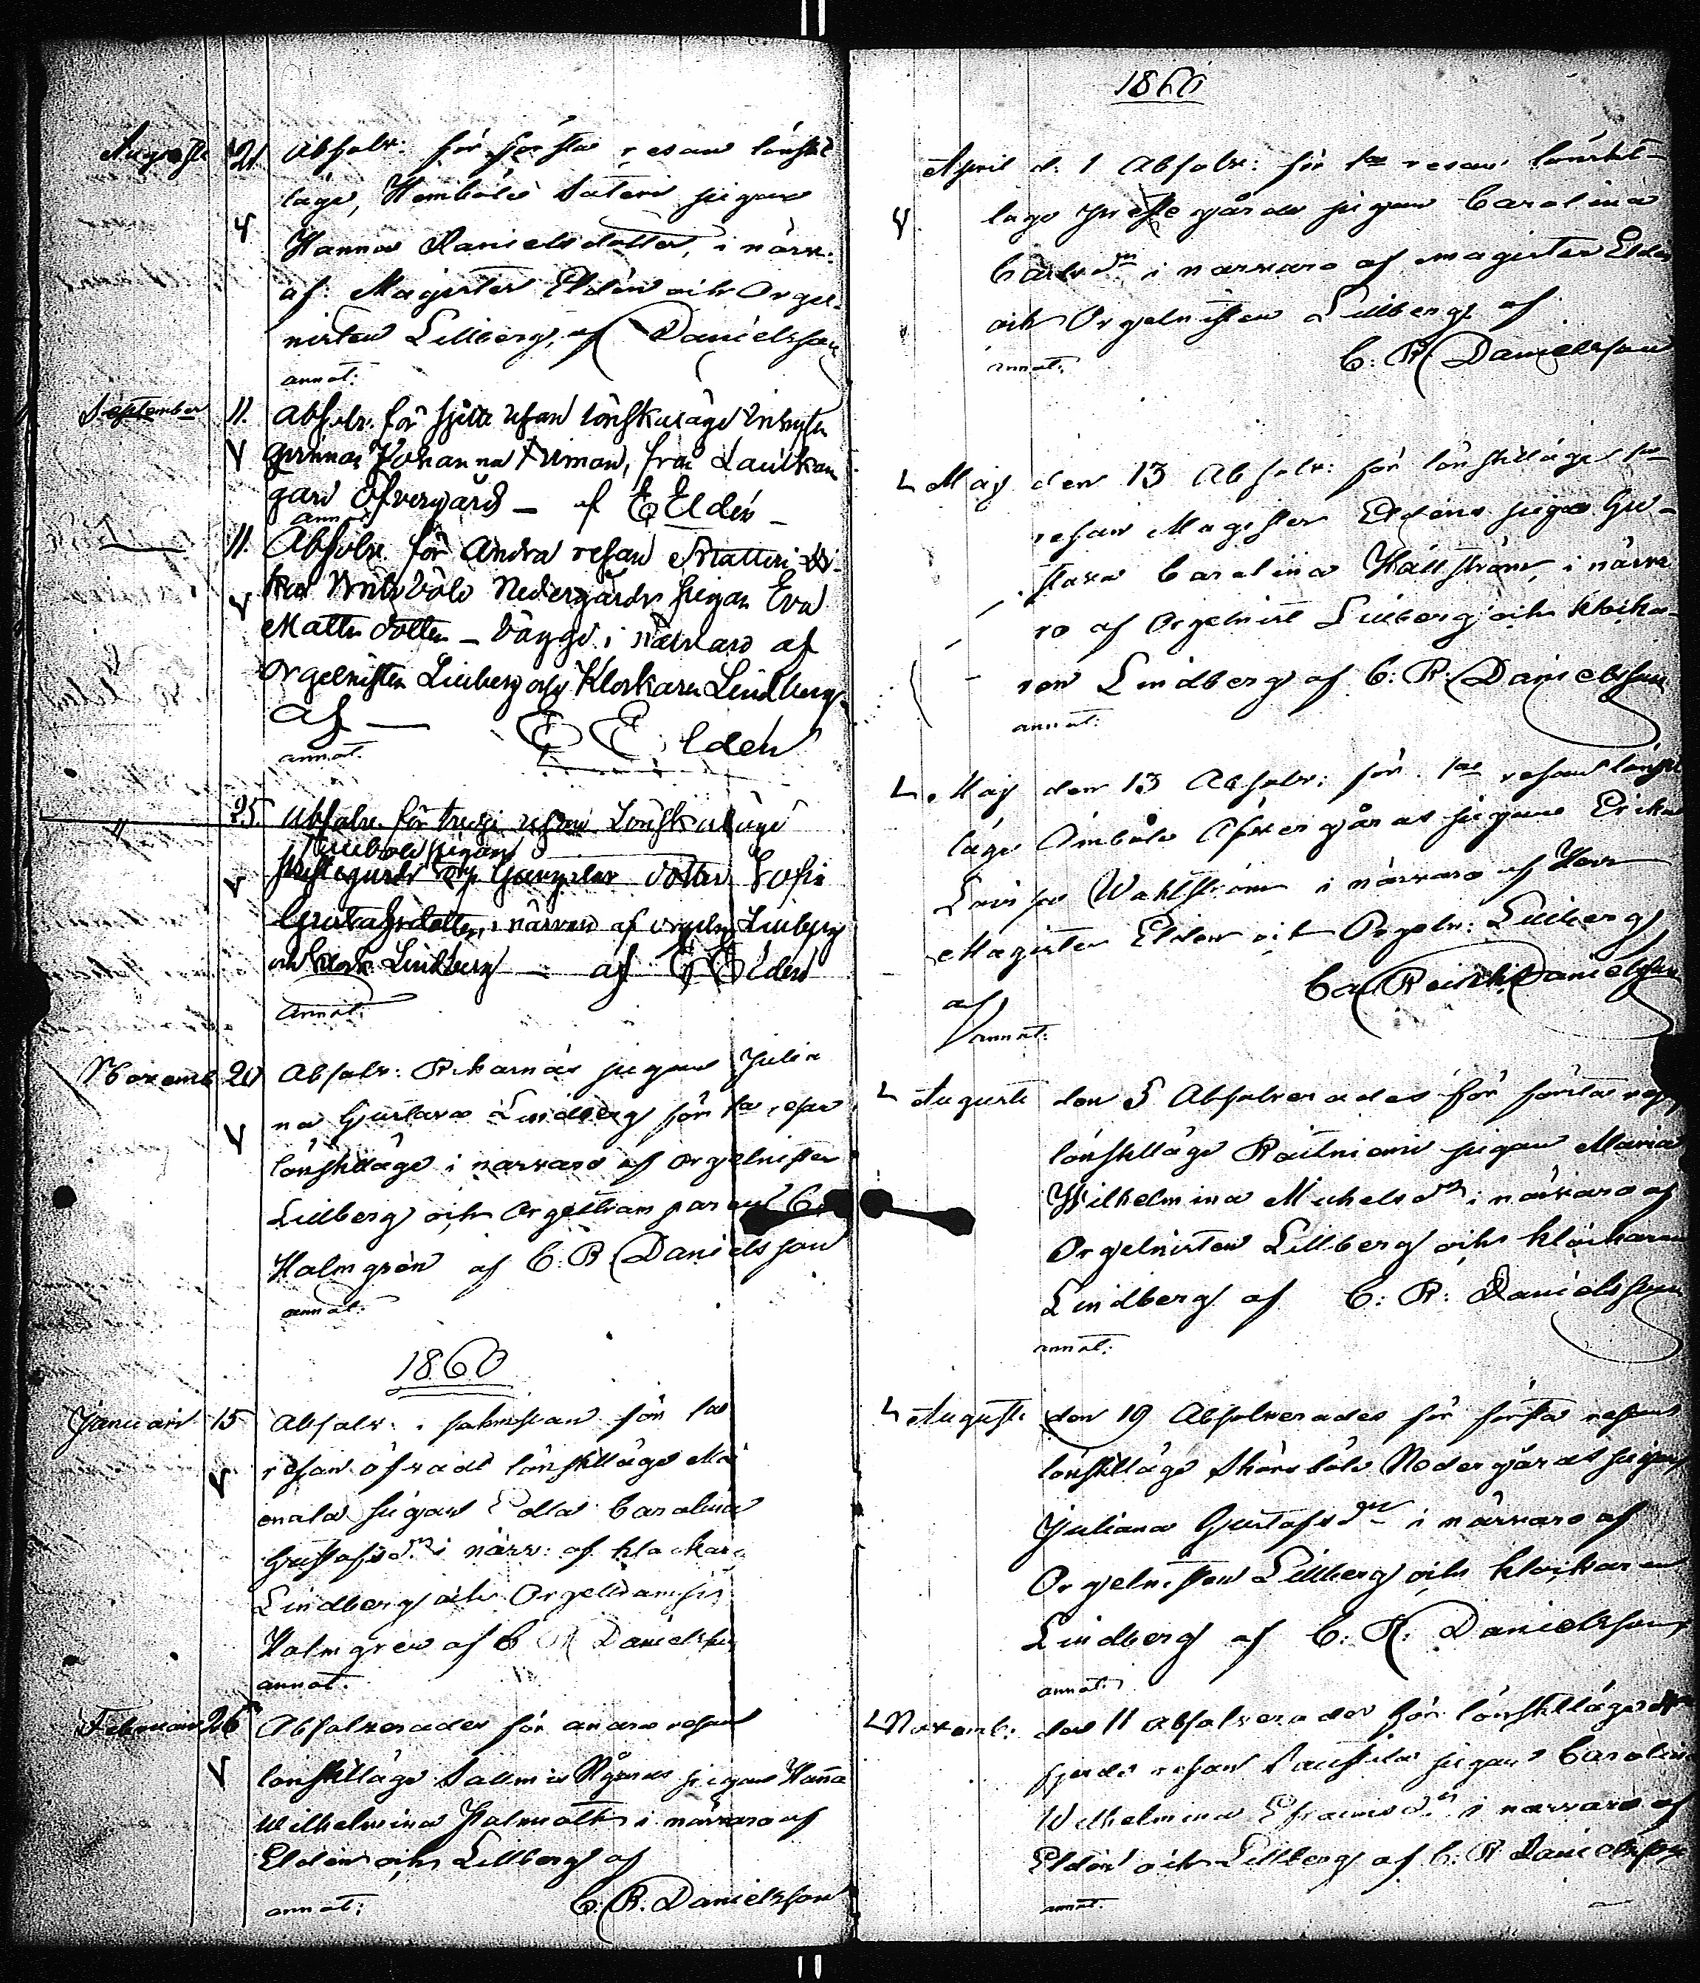 Augusti 21 Absolv: för första resan lönska
läge, Hemböle Säteri pigan
Hanna Danielsdotter, i närv:
af Magister Eldén och Orgel-
nisten Lillberg, af Danielsson
annot:
September 11. Absolv. för sjette resan lönskaläge Inhyses
qvinnan Johanna Friman, från
gård Öfvergård — af E Eldén —
annot
11. Absolv. för Andra resan
Böle Nedergårds pigan Eva
Matts dotter — i närvaro af
Orgelnisten Lillberg och Klockaren Lindberg
af — E Eldén
annot.
25. Absolv. för tredje resan Lönskaläge
böle pigan
dotter Sofia
Gustafsdotter, i närvaro af orgeln. Lillberg
och Klock. Lindberg — af E Eldén
Annot.
Novemb 20 Absolv: pigan Julia
na Gustava Lindberg för 1a resan
lönskläge i närvaro af Orgelnisten
Lillberg och Orgeltramparen C.
Holmgrén af C. R Danielsson
annot:
1860
Januari 15 Absolv: i sakristian för 1a
resan öfvadt lönskläge
pigan Edla Carolina
Gustafsdr i närv: af klockare
Lindberg och
Holmgren af C R Danielsson
annot.
Februari 26 Absolverades för andra resan
lönskläge Sallmis pigan Hanna
Wilhelmina i närvaro af
Eldén och Lillberg af
annot: C. R. Danielsson
1860
April d. 1 Absolv: för 1a resan lönsk-
läge Prestegårds pigan Carolina
Carlsdr i närvaro af magister Eldén
och Orgelnisten Lillberg af
annot: C: R Danielsson
Maj den 13 Absolv: för lönskläge 1a
resan Magister Eldéns piga Gu-
stava Carolina Hällström, i närva
ro af Orgelnist Lillberg och klocka-
ren Lindberg af C: R. Danielsson
annot:
Maj den 13 Absolv: för 1a resan lönsk
läge Ömböle Öfvergårds pigan Erika
Lovisa Wahlström i närvaro af Herr
Magister Eldén och Orgeln: Lillberg
af Ca Danielsson
annot:
Augusti den 5 Absolverades för första resan
lönskläge Raitniemi pigan Maria
Wilhelmina Michelsdr i närvaro af
Orgelnisten Lillberg och klockaren
Lindberg af C: R: Danielsson
annot:
Augusti den 19 Absolverades för första resan
lönskläge Nedergårds pigan
Juliana Gustafsdr i närvaro af
Orgelnisten Lillberg och klockaren
Lindberg af C: R. Danielsson
annot:
Novemb: den 11 Absolverades för lönskläge
fjerde resan pigan Carolina
Wilhelmina Efraimsdr i närvaro af
Eldén och Lillberg af C: R Danielsson
annot.